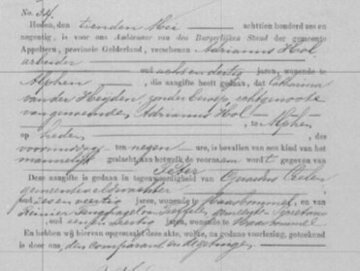 No. 34.
Heden, den tienden Mei achttien honderd zes en
negentig, is voor ons Ambtenaar van den Burgerlijken Stand der gemeente
Appeltern, provincie Gelderland, verschenen Adrianus Hol
arbeider
oud acht en dertig jaren, wonende te
Alphen, die aangifte heeft gedaan, dat Catharina
van der Heijden zonder beroep echtgenoote
van genoemden Adrianus Hol te Alphen
op heden, des
voormiddag ten negen ure, is bevallen van een kind van het
mannelijk geslacht, aan hetwelk de voornaam wordt gegeven van
Peter
Deze aangifte is gedaan in tegenwoordigheid van Gerardus
gemeenteveldwachter
oud zes en veertig jaren, wonende te Maasbommel, en van
oud en dertig jaren, wonende te Maasbommel
En hebben wij hiervan opgemaakt deze akte, welke, na gedane voorlezing, geteekend
is door ons, den comparant en de getuigen.